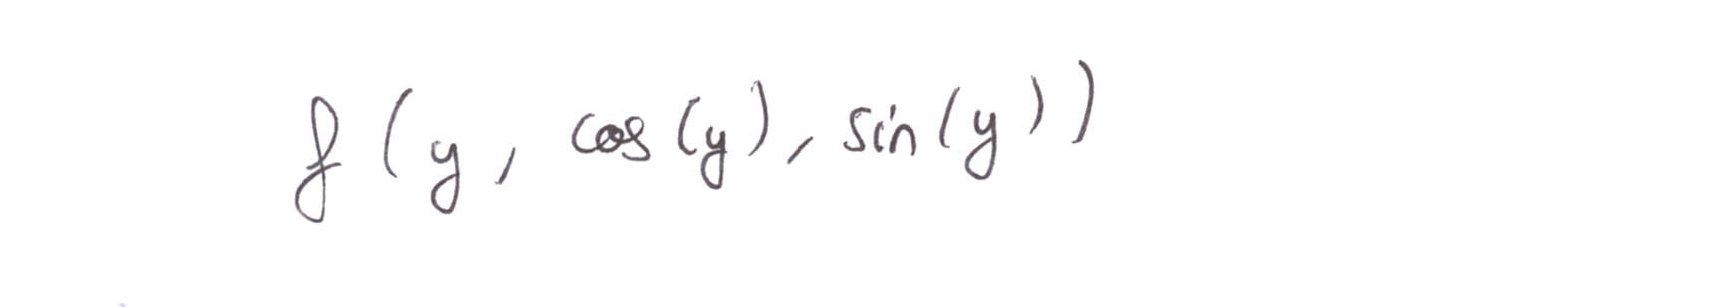 f(y, cos(y), sin(y))